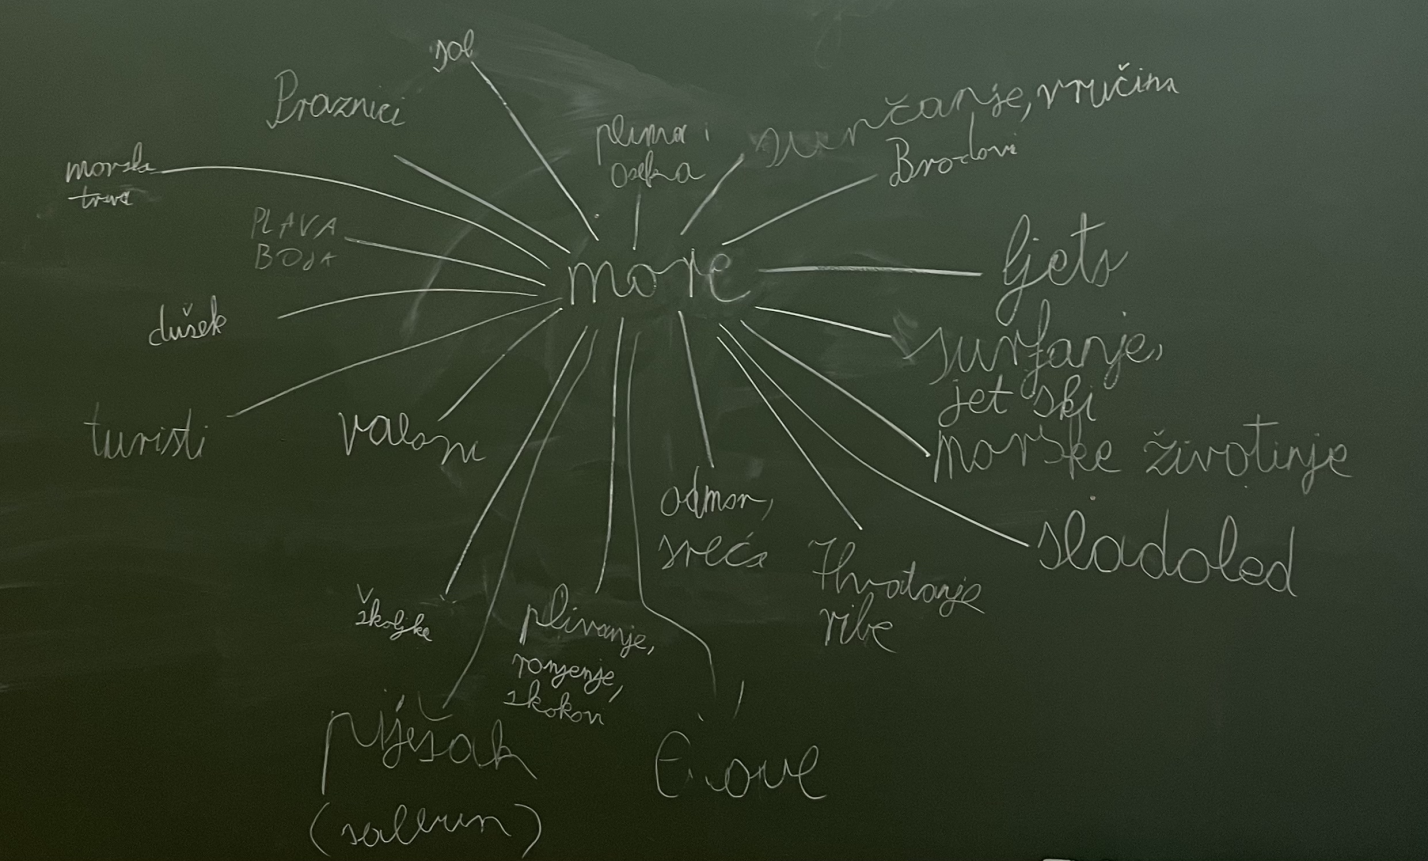 sol
Praznici
sunčanje, vručina
plima i
oseka
Brodovi
morska
trava
PLAVA
BOJA
more
ljeto
dušek
surfanje,
jet ski
turisti
valovi
morske životinje
odmor,
sreća
sladoled
Hvatanje
ribe
školjke
plivanje,
ronjenje,
skokovi
pijesak